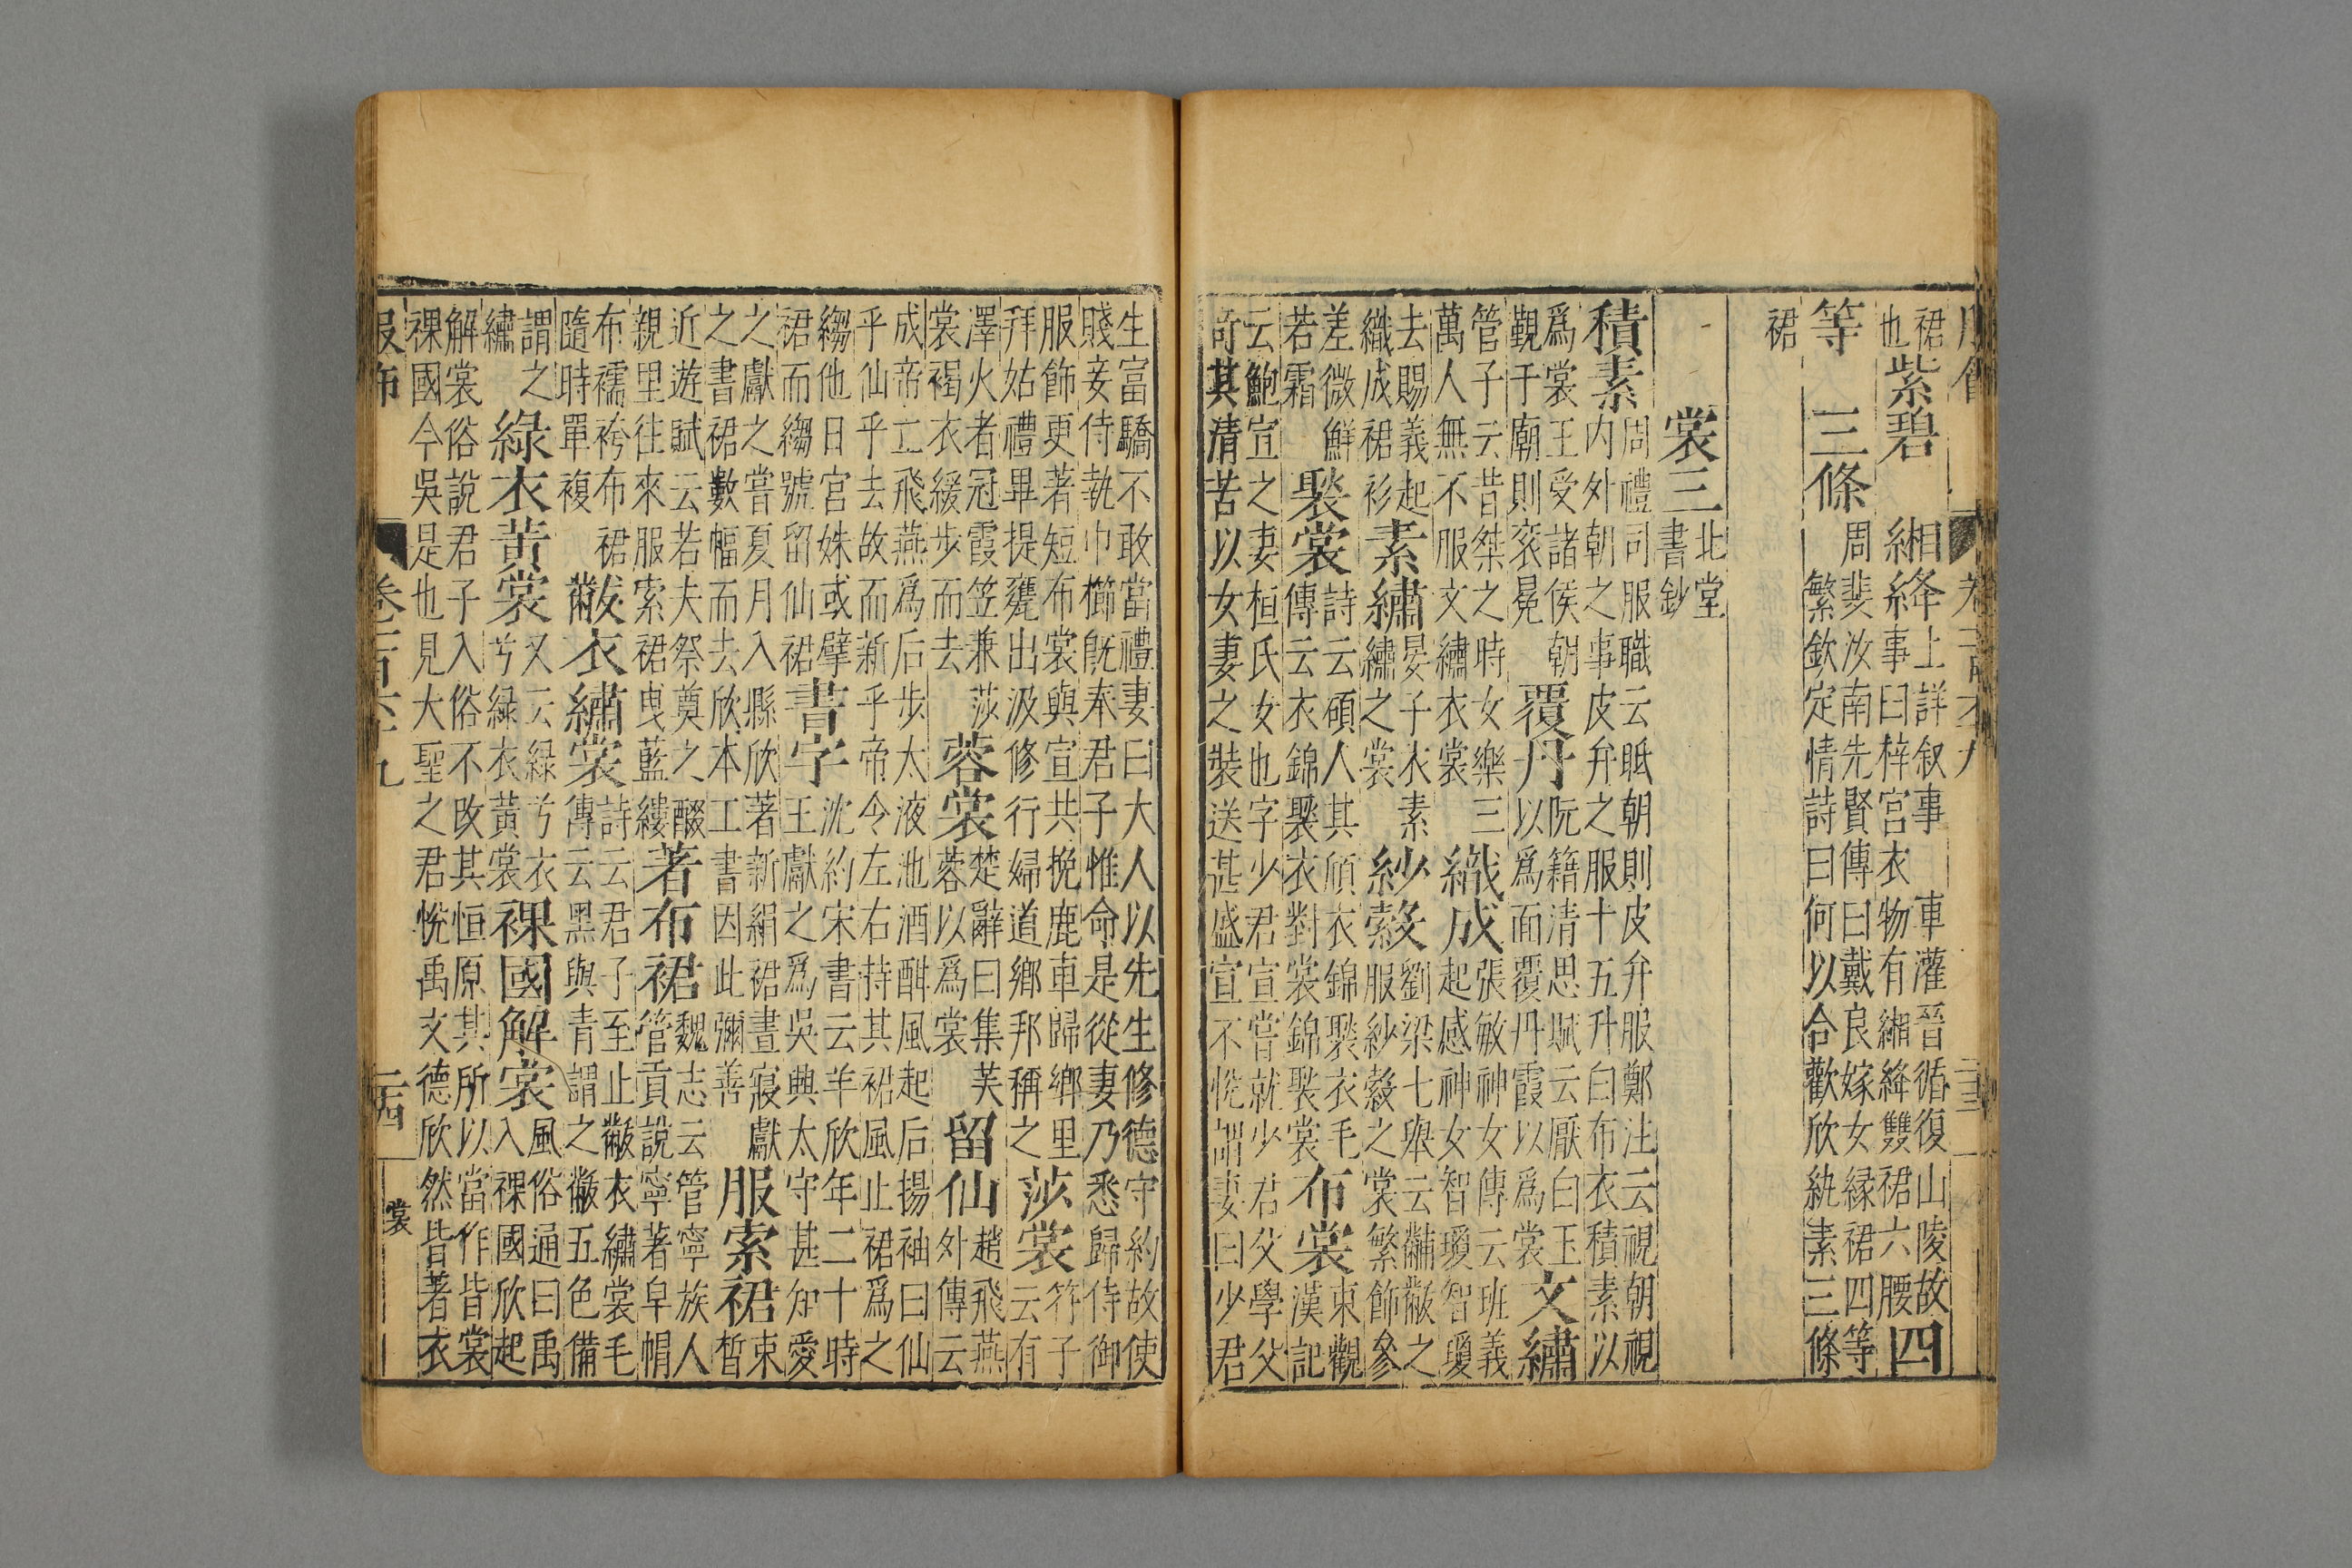 裙也紫碧緗絳上詳叙事車灌晉循復山陵故事曰梓宮衣物有緗絳雙裙六腰四
等三條周斐汝南先賢傳曰戴良嫁女緣裙四等繁欽定情詩曰何以合歡欣紈素三條
裙
裳三北堂書鈔
積素周禮司服職云眡朝則皮弁服鄭注云視朝視內外朝之事皮弁之服十五升白布衣積素以
爲裳王受諸侯朝覲于廟則衮冕覆丹阮籍清思賦云厭白玉以爲面覆丹霞以爲裳文繡
管子云昔桀之時女樂三萬人無不服文繡衣裳織成張敏神女傳云班義起感神女智瓊智瓊
去賜義起織成裙衫素繡晏子衣素繡之裳紗縠劉梁七舉云黼黻之服紗縠之裳繁飾參
差微鮮若霜褧裳詩云碩人其頎衣錦褧衣毛傳云衣錦褧衣對裳錦褧裳布裳東觀漢記
云鮑宣之妻桓氏女也字少君宣嘗就少君父學父奇其清苦以女妻之裝送甚盛宣不悅謂妻曰少君
生富驕不敢當禮妻曰大人以先生修德守約故使賤妾侍執巾櫛既奉君子惟命是從妻乃悉歸侍御
服飾更著短布裳與宣共挽鹿車歸鄉里拜姑禮畢提甕出汲修行婦道鄉邦稱之莎裳符子云有
澤火者冠霞笠兼莎裳褐衣緩步而去蓉裳楚辭曰集芙蓉以爲裳留仙趙飛燕外傳云
成帝立飛燕爲后步太液池酒酣風起后揚袖曰仙乎仙乎去故而新乎帝令左右持其裾風止裙爲之
縐他日宮姝或擘裙而縐號留仙裙書字沈約宋書云羊欣年二十時王獻之爲吳興太守甚知愛
之獻之嘗夏月入縣欣著新絹裙晝寢獻之書裙數幅而去欣本工書因此彌善服索裙束晳
近遊賦云若夫祭奠之醊親里往來服索裙曳藍縷著布裙魏志云管寧族人管貢說寧著皁帽
布襦袴布裙隨時單複黻衣繡裳詩云君子至止黻衣繡裳毛傳云黑與青謂之黻五色備
謂之繡綠衣黃裳又云綠兮衣兮綠衣黃裳裸國解裳風俗通曰禹入裸國欣起
解裳俗說君子入俗不改其恒原其所以當作皆裳裸國今吳是也見大聖之君悅禹文德欣然皆著衣
服飾 卷一百六十九 二十四 裳